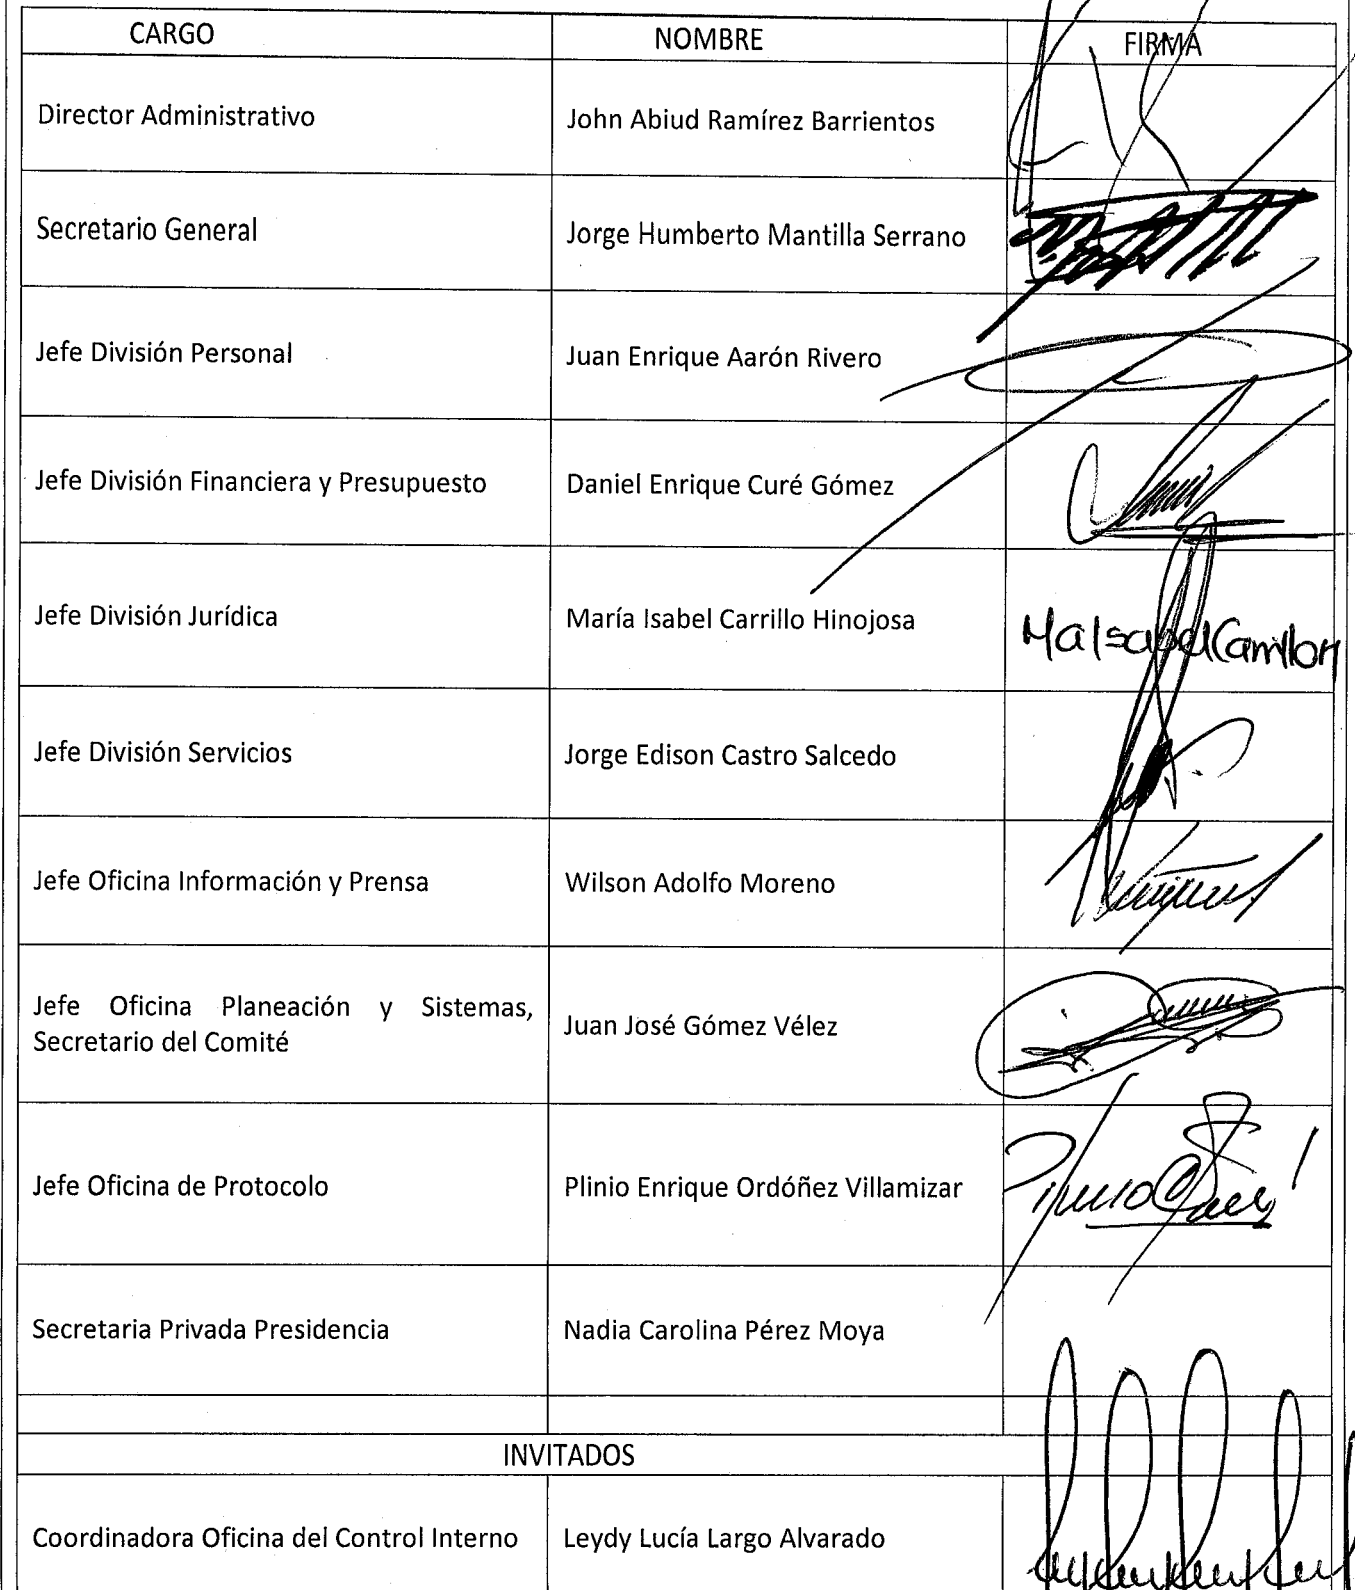 CARGO NOMBRE FIRMA
Director Administrativo John Abiud Ramírez Barrientos
Secretario General Jorge Humberto Mantilla Serrano
Jefe División Personal Juan Enrique Aarón Rivero
Jefe División Financiera y Presupuesto Daniel Enrique Curé Gómez
Jefe División Jurídica María Isabel Carrillo Hinojosa MaIsabelCarrilloH
Jefe División Servicios Jorge Edison Castro Salcedo
Jefe Oficina Información y Prensa Wilson Adolfo Moreno
Jefe Oficina Planeación y Sistemas,
Secretario del Comité Juan José Gómez Vélez
Jefe Oficina de Protocolo Plinio Enrique Ordóñez Villamizar
Secretaria Privada Presidencia Nadia Carolina Pérez Moya
INVITADOS
Coordinadora Oficina del Control Interno Leydy Lucía Largo Alvarado